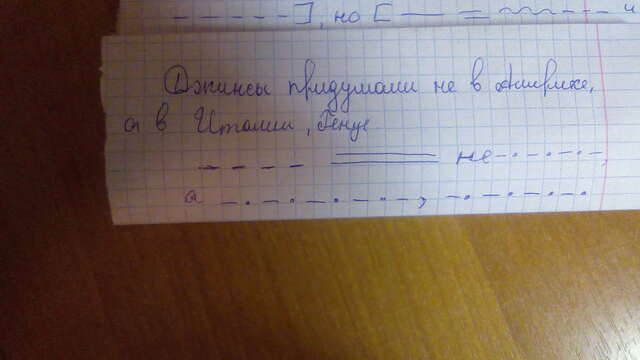 ], но [ и
Джинсы придумали не в Америке,
а в Италии, Генуе
не ,
а ,